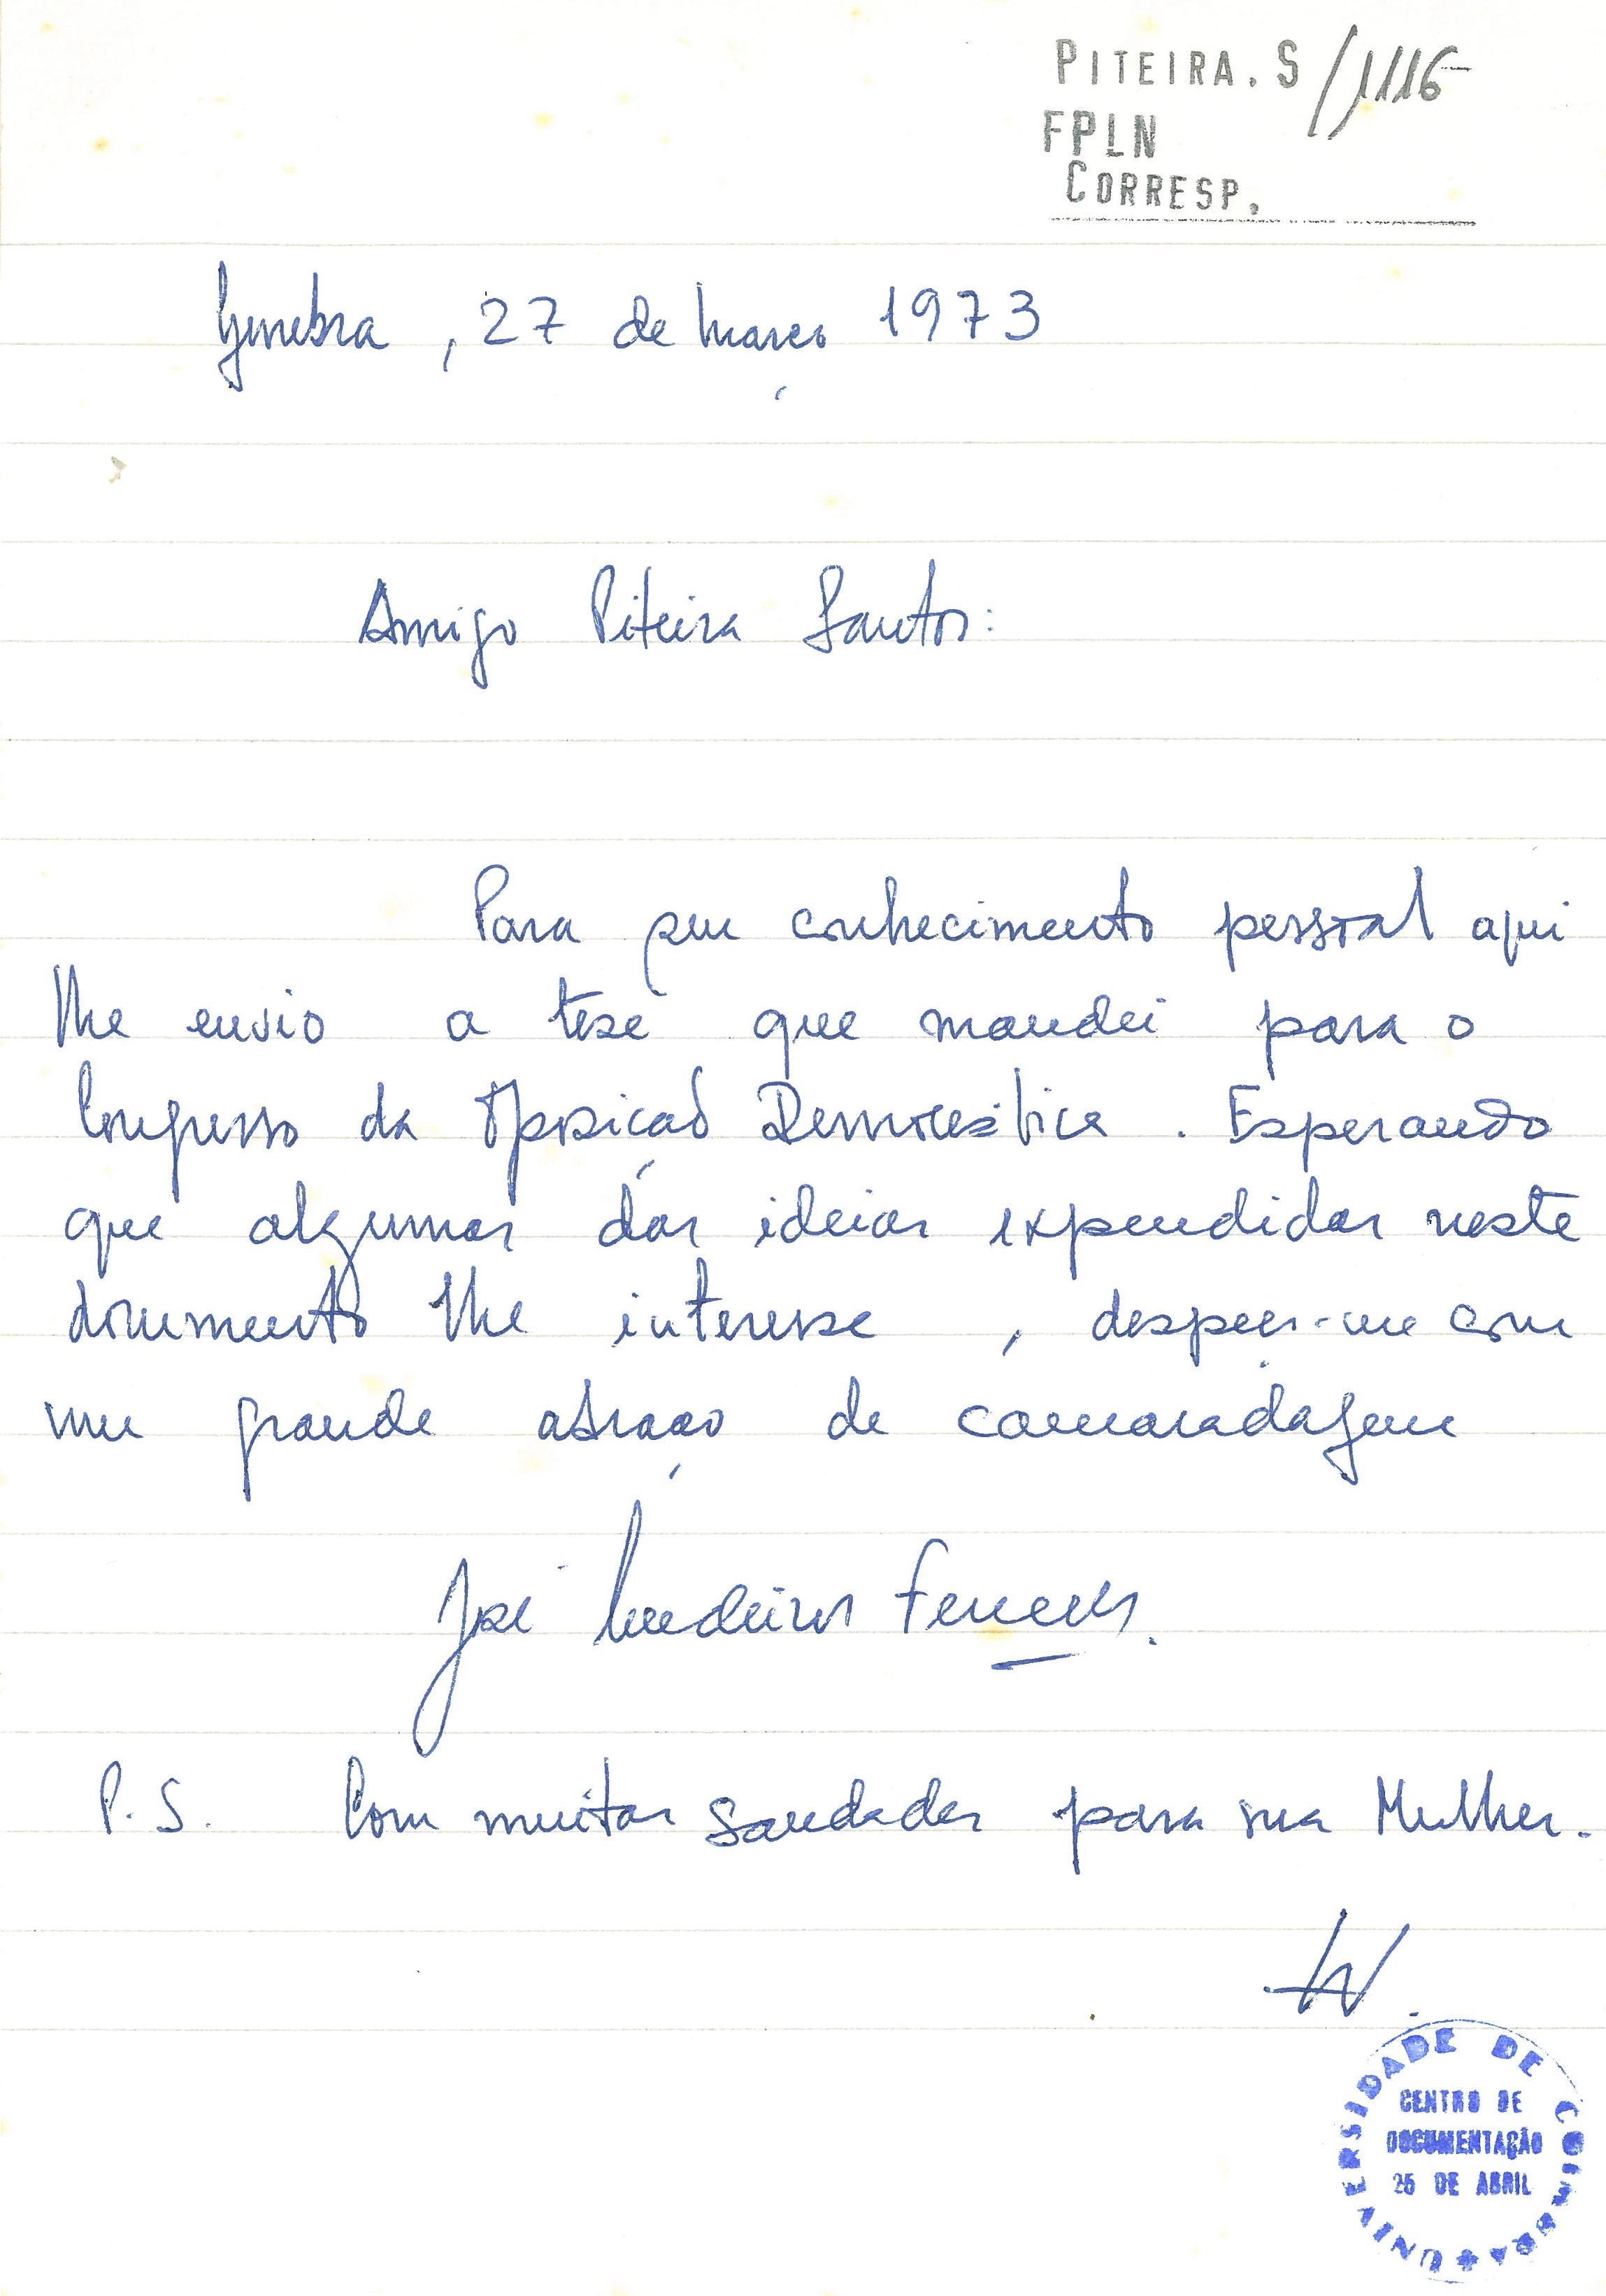 PITEIRA. S /1116
FPLN
CORRESP.
Genebra, 27 de março 1973
Amigo Piteira Santos:
Para seu conhecimento pessoal aqui
lhe envio a tese que mandei para o
Congresso da Oposição Democrática. Esperando
que algumas das ideias expendidas neste
documento lhe interesse, despeço-me com
um grande abraço de camaradagem
José Medeiros Ferreira.
P.S. Com muitas saudades para sua Mulher.
UNIVERSIDADE DE COIMBRA
CENTRO DE
DOCUMENTAÇÃO
25 DE ABRIL